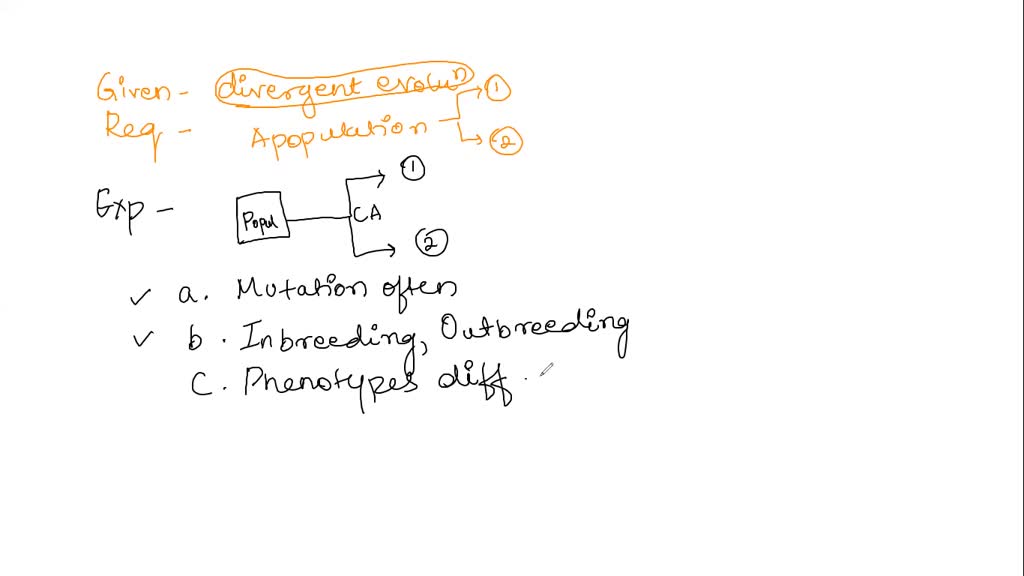 Given - divergent evolun
Req - A population ① ②
①
Exp - Popul CA
②
a. Mutation often
b. Inbreeding, Outbreeding
C. Phenotypes diff.